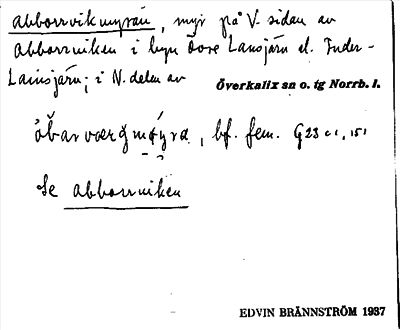 abborrvikmyran, myr på V. sidan av
abborrviken i byn Övre Lansjärv el. Inder-
Lansjärv; i N. delen av Överkalix sn o. tg Norrb. l.
bf. fem.
Se abborrviken
EDVIN BRÄNNSTRÖM 1937